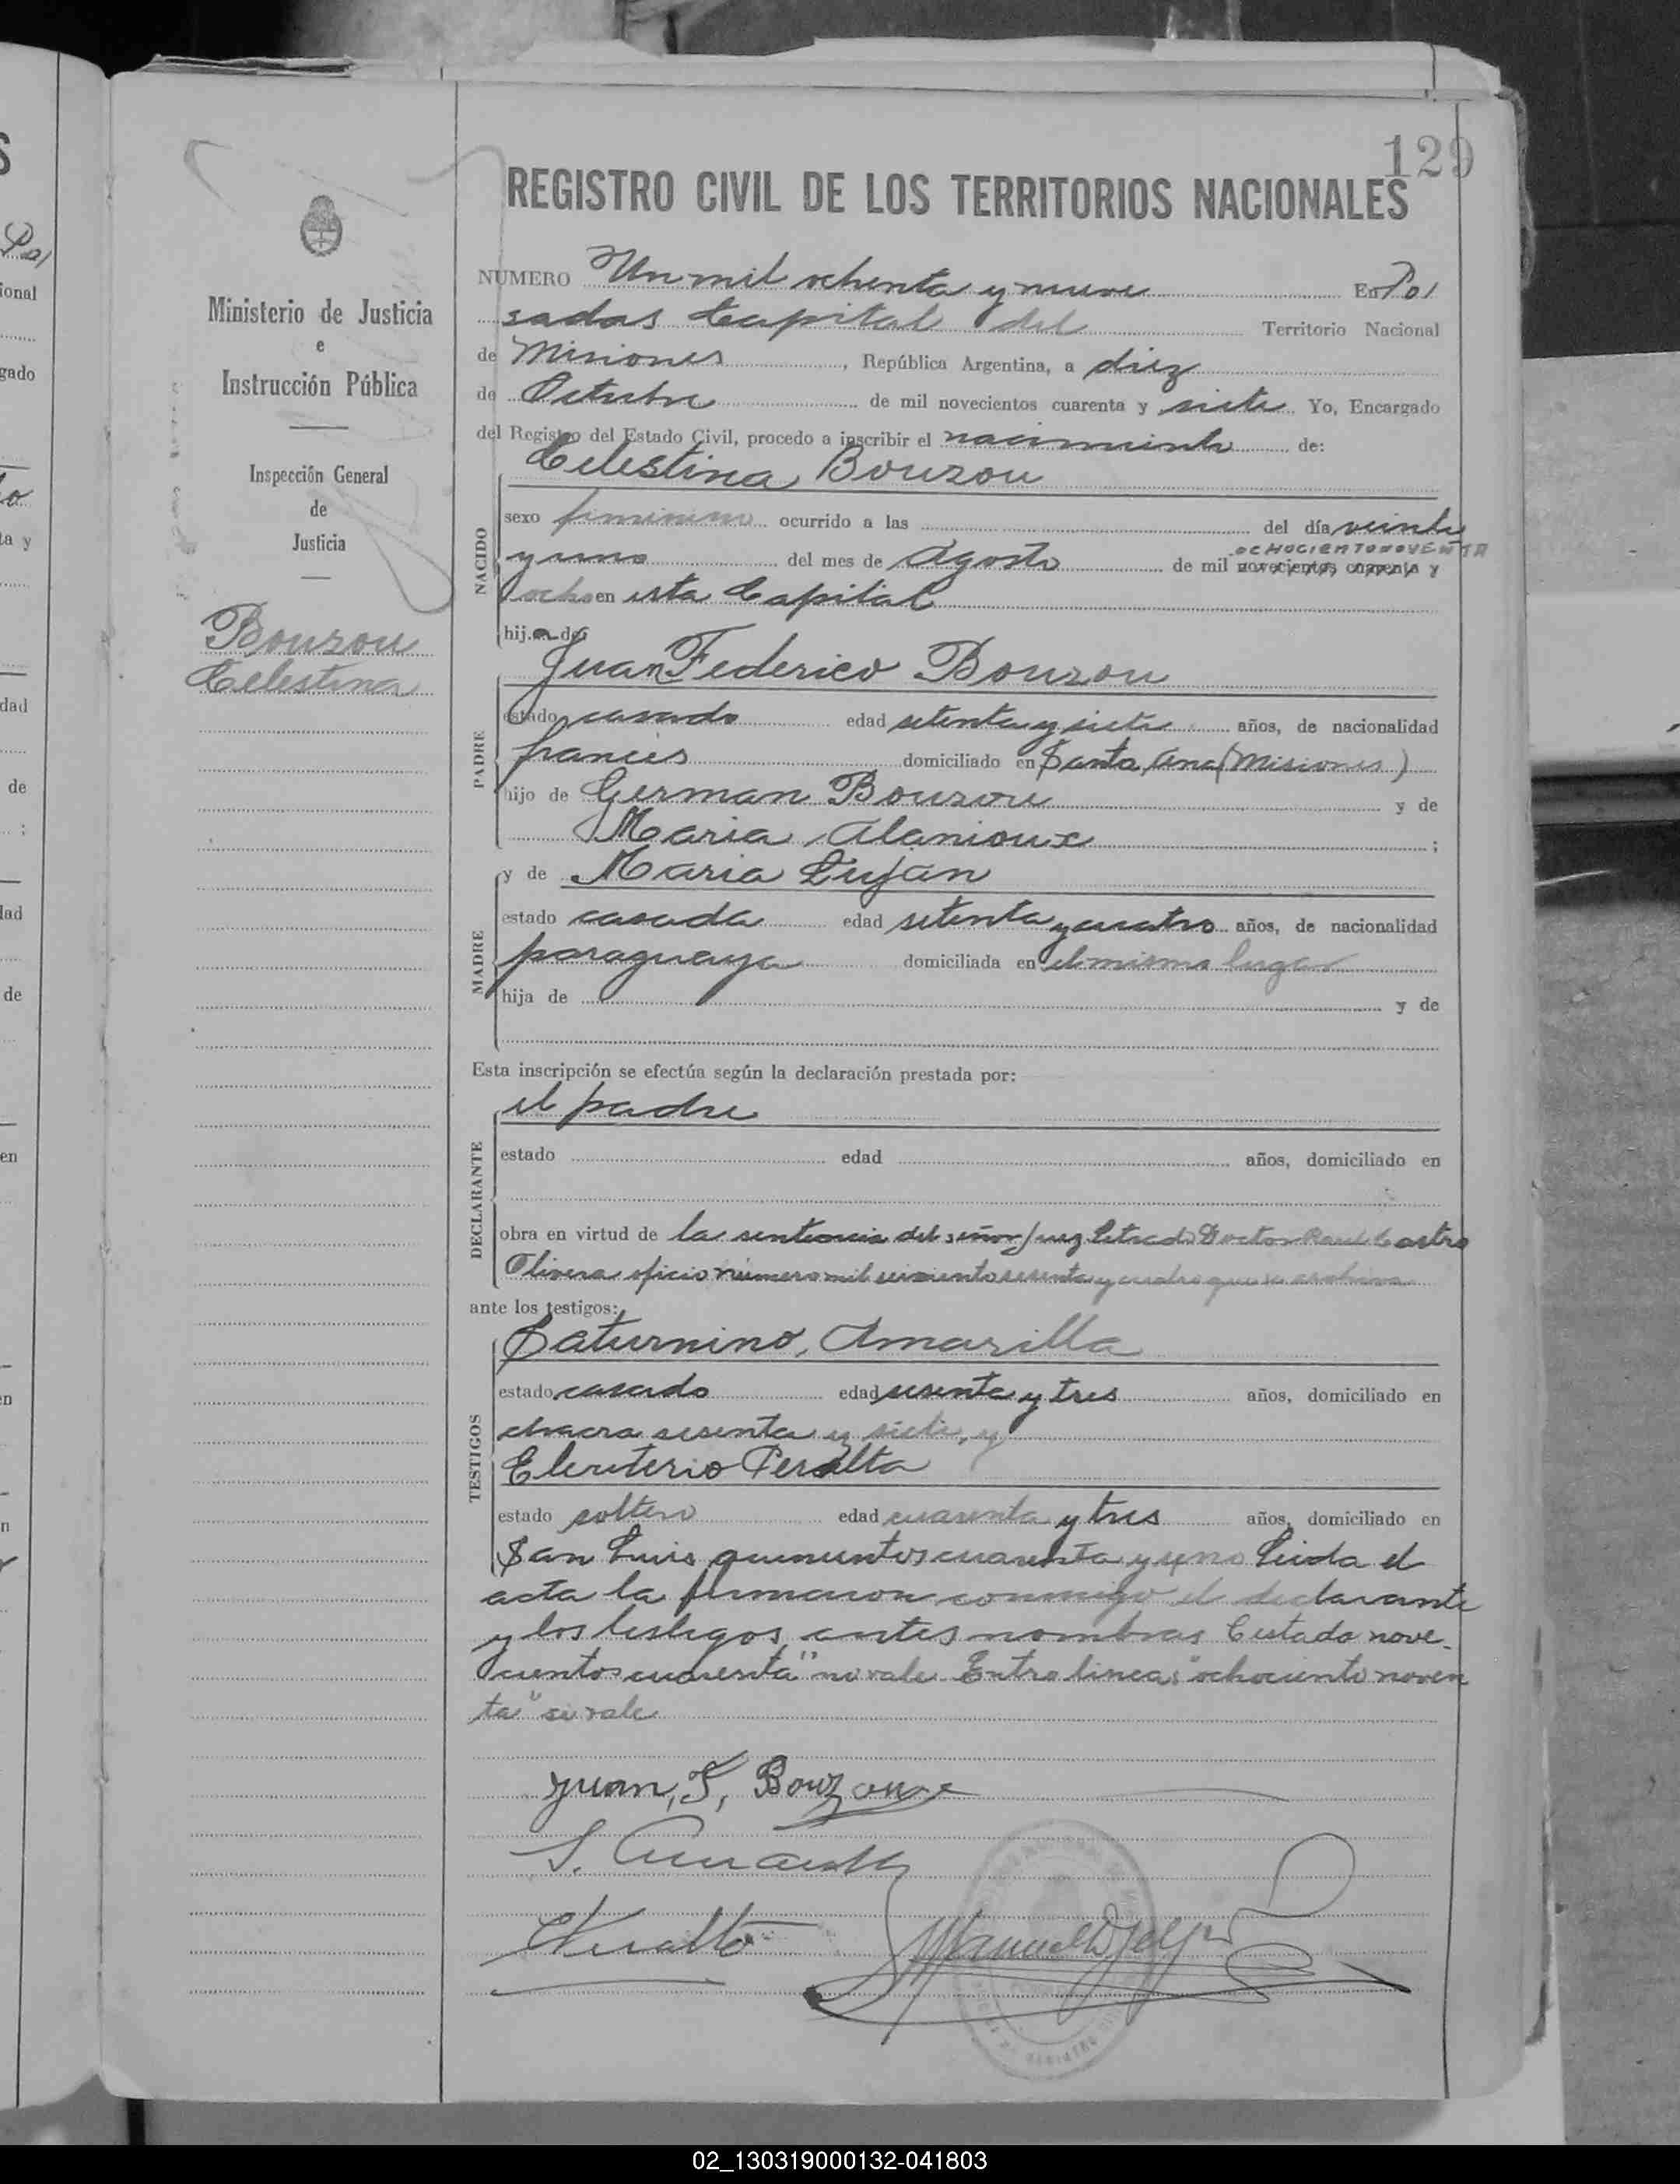 129
REGISTRO CIVIL DE LOS TERRITORIOS NACIONALES
Ministerio de Justicia
e
Instrucción Pública
Inspección General
de
Justicia
Bouzou
Celestina
NUMERO Un mil ochenta y nueve En Po/
sadas Capital del Territorio Nacional
de Misiones, República Argentina, a diez
de Octubre de mil novecientos cuarenta y siete Yo, Encargado
del Registro del Estado Civil, procedo a inscribir el nacimiento de:
Celestina Bouzou
NACIDO
sexo femenino ocurrido a las del día veinte
OCHOCIENTONOVENTA
y uno del mes de Agosto de mil novecientos cuarenta y
ocho en esta Capital
hija de:
Juan Federico Bouzou
PADRE
estado casado edad setenta y siete años, de nacionalidad
francés domiciliado en Santa Ana (Misiones)
hijo de German Bouzou y de
Maria Alanioux;
y de Maria Luján
MADRE
estado casada edad setenta y cuatro años, de nacionalidad
paraguaya domiciliada en el mismo lugar
hija de y de
Esta inscripción se efectúa según la declaración prestada por:
el padre
DECLARANTE
estado edad años, domiciliado en
obra en virtud de la sentencia del señor Juez Letrado Doctor Raul Castro
Olivera oficio número mil seiscientos sesenta y cuatro que se archiva
ante los testigos:
Saturnino Amarilla
TESTIGOS
estado casado edad sesenta y tres años, domiciliado en
chacra sesenta y siete, y
Eleuterio Peralta
estado soltero edad cuarenta y tres años, domiciliado en
San Luis quinientos cuarenta y uno Leida el
acta la firmaron conmigo el declarante
y los testigos antes nombras Testado nove-
cientos cuarenta" no vale Entre lineas "ochociento noven
ta" si vale
Juan, F, Bouzoux
S. Amarilla
E Peralta
02_130319000132-041803